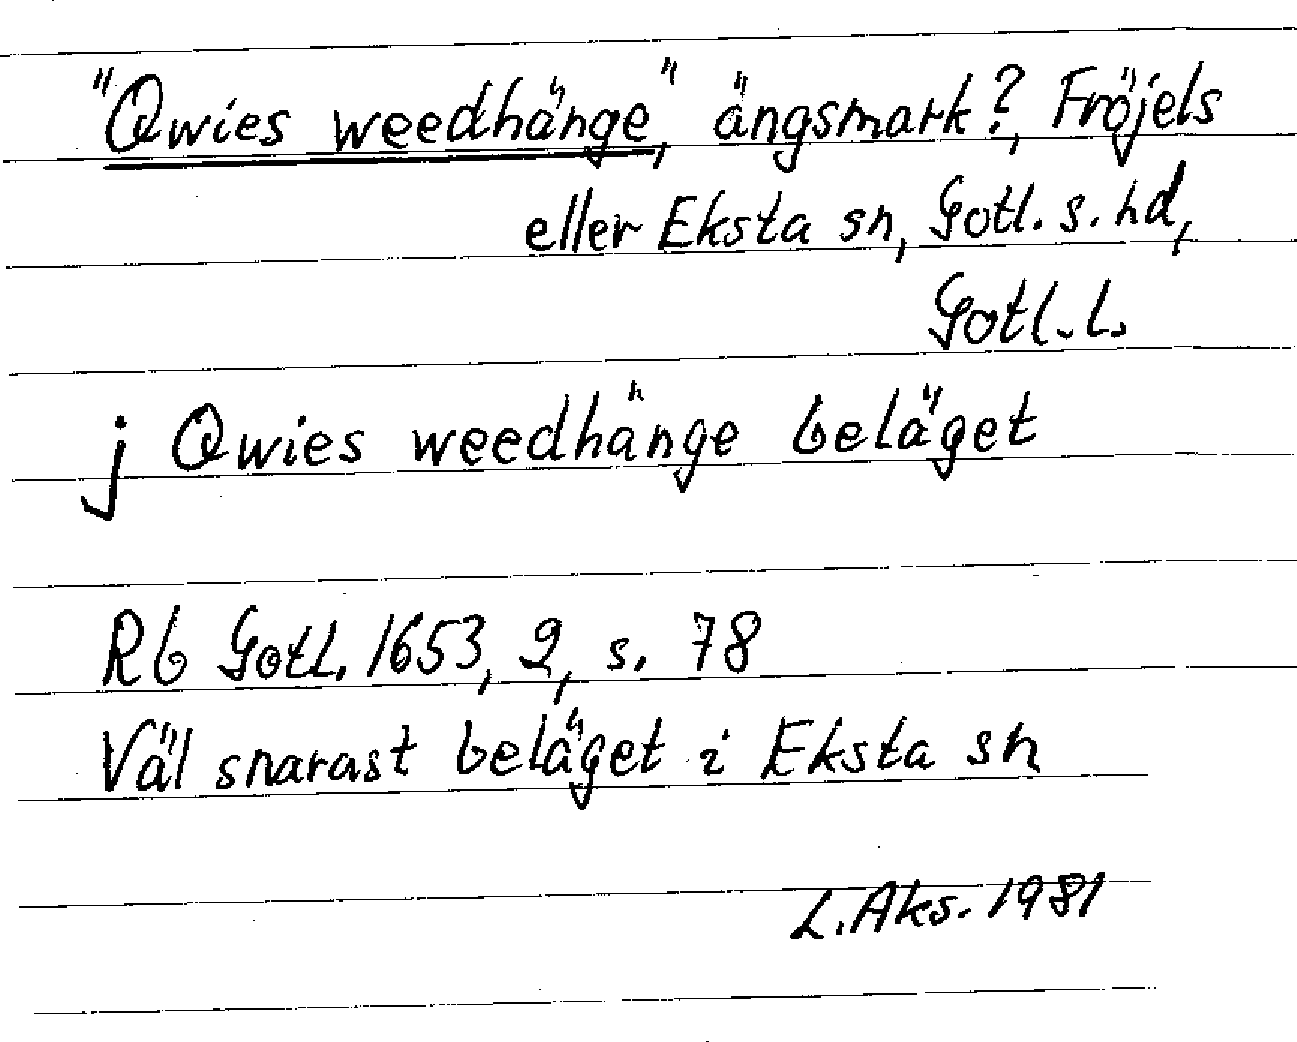 "Qwies weedhänge," ängsmark?, Fröjels
eller Eksta sn, Gotl. s. hd,
Gotl. l.
j Qwies weedhänge beläget
Rb Gotl. 1653, 2, s. 78
Väl snarast beläget i Eksta sn
L. Aks. 1981